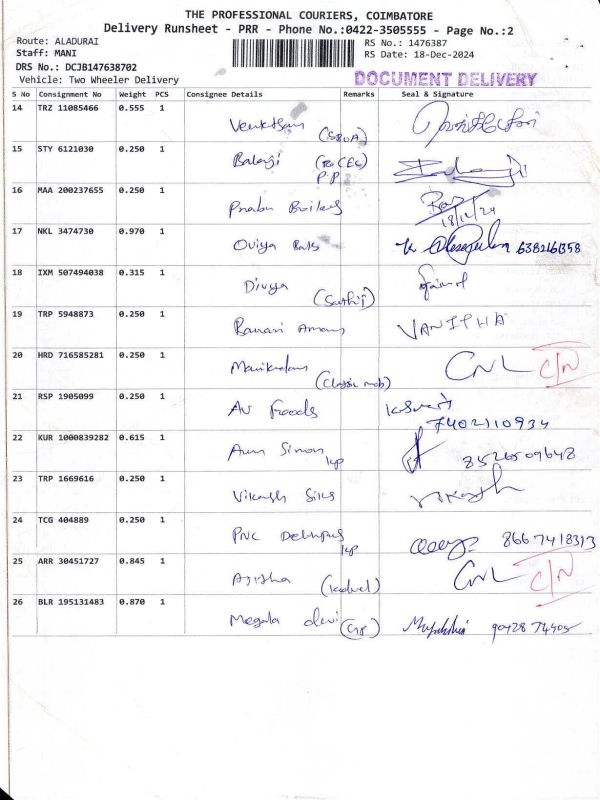 THE PROFESSIONAL COURIERS, COIMBATORE
Delivery Runsheet - PRR - Phone No.:0422-3505555 - Page No.:2
Route: ALADURAI RS No.: 1476387
Staff: MANI RS Date: 18-Dec-2024
DRS No.: DCJB147638702
Vehicle: Two Wheeler Delivery DOCUMENT DELIVERY
S No Consignment No Weight PCS Consignee Details Remarks Seal & Signature
14 TRZ 11085466 0.555 1
15 STY 6121030 0.250 1 Balaji
P.P
16 MAA 200237655 0.250 1 Prabu
18/12/24
17 NKL 3474730 0.970 1 Oviya
18 IXM 507494038 0.315 1 Divya
19 TRP 5948873 0.250 1 VANITHA
20 HRD 716585281 0.250 1 CNL C/N
(Classic mob)
21 RSP 1905099 0.250 1 AV Foods
7402110934
22 KUR 1000839282 0.615 1 Arun Simon 8526509648
23 TRP 1669616 0.250 1 Vikash Silks Vikash
24 TCG 404889 0.250 1 PNC 8667418313
25 ARR 30451727 0.845 1 CNL C/N
26 BLR 195131483 0.870 1 Megala devi 9042874405